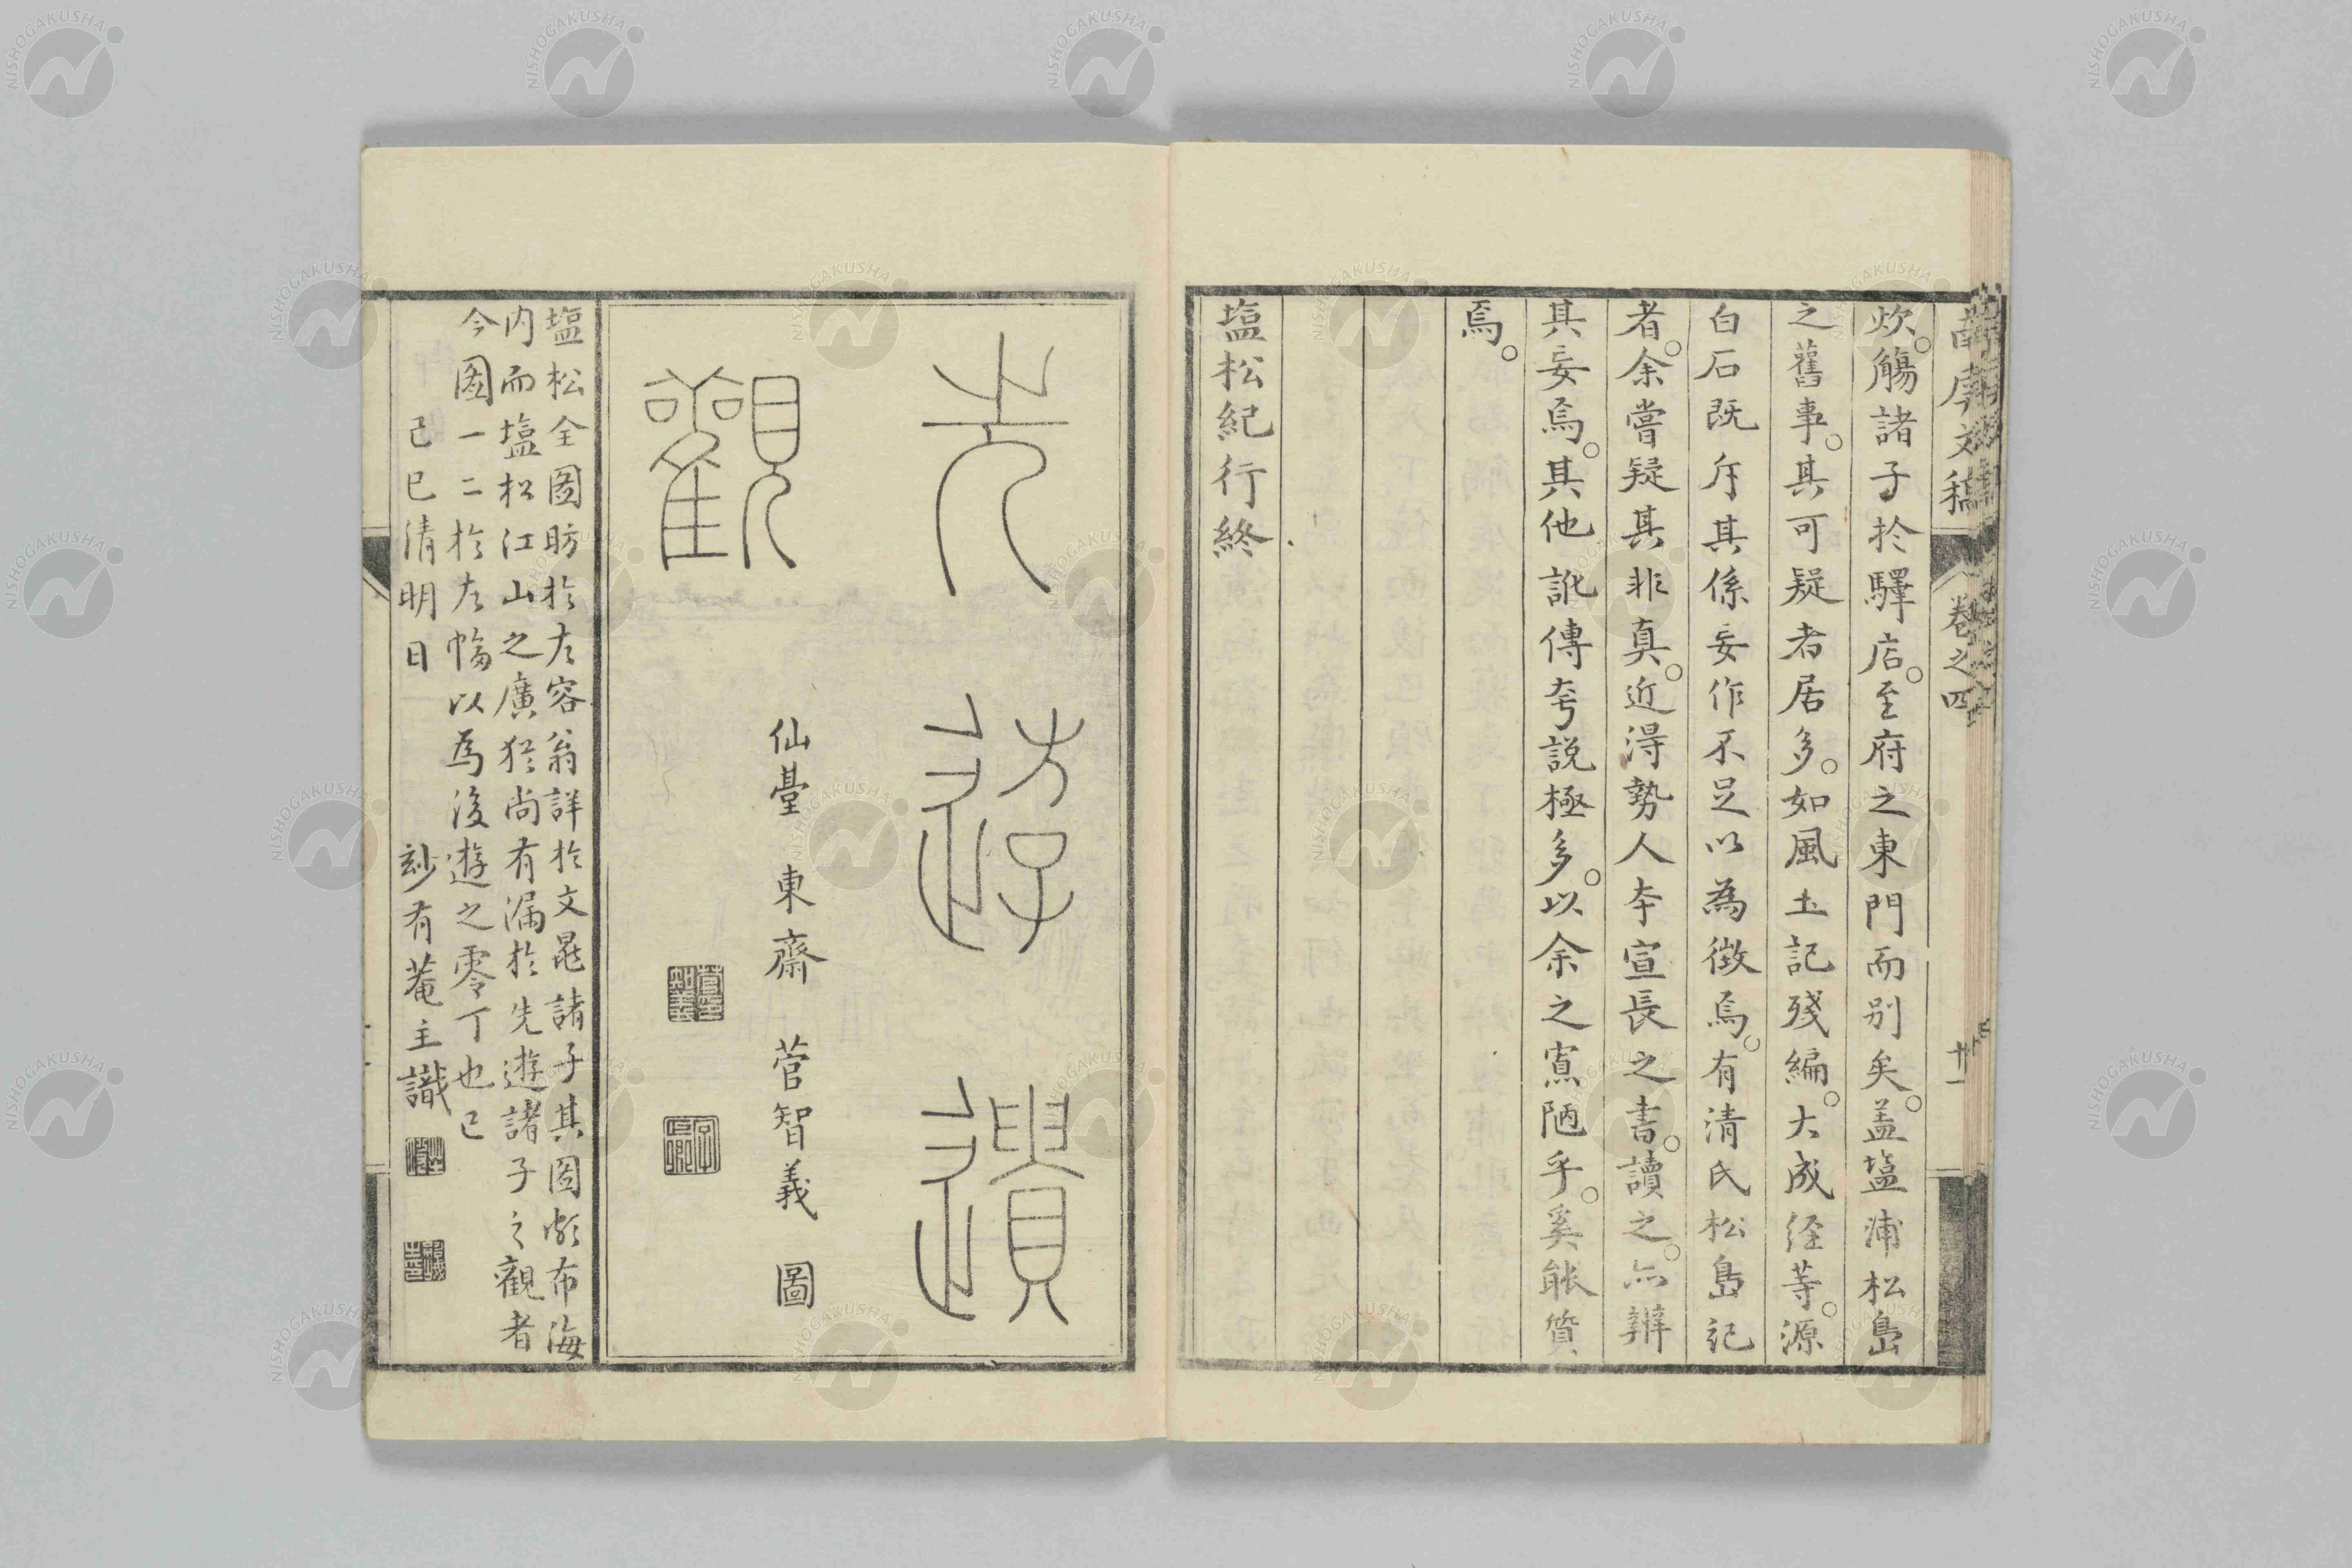 文稿
卷之四
十一
炊。觴諸子於驛店。至府之東門而別矣。盖塩浦松島
之舊事。其可疑者居多。如風土記殘編。大成経等。源
白石既斥其係妄作不足以為徴焉。有清氏松島記
者。余嘗疑其非真。近得勢人本宣長之書。讀之。亦辨
其妄焉。其他訛傳夸説極多。以余之寡陋乎。奚能質
焉。
塩松紀行終
先游遺
觀
仙臺 東齋 菅智義 圖
塩松全圖昉於左容翁詳於文晁諸子其圖頗布海
内而塩松江山之廣猶尚有漏於先遊諸子之觀者
今圖一二於左幅以為後遊之零丁也已
己巳清明日 玅有菴主識
NISHOGAKUSHA